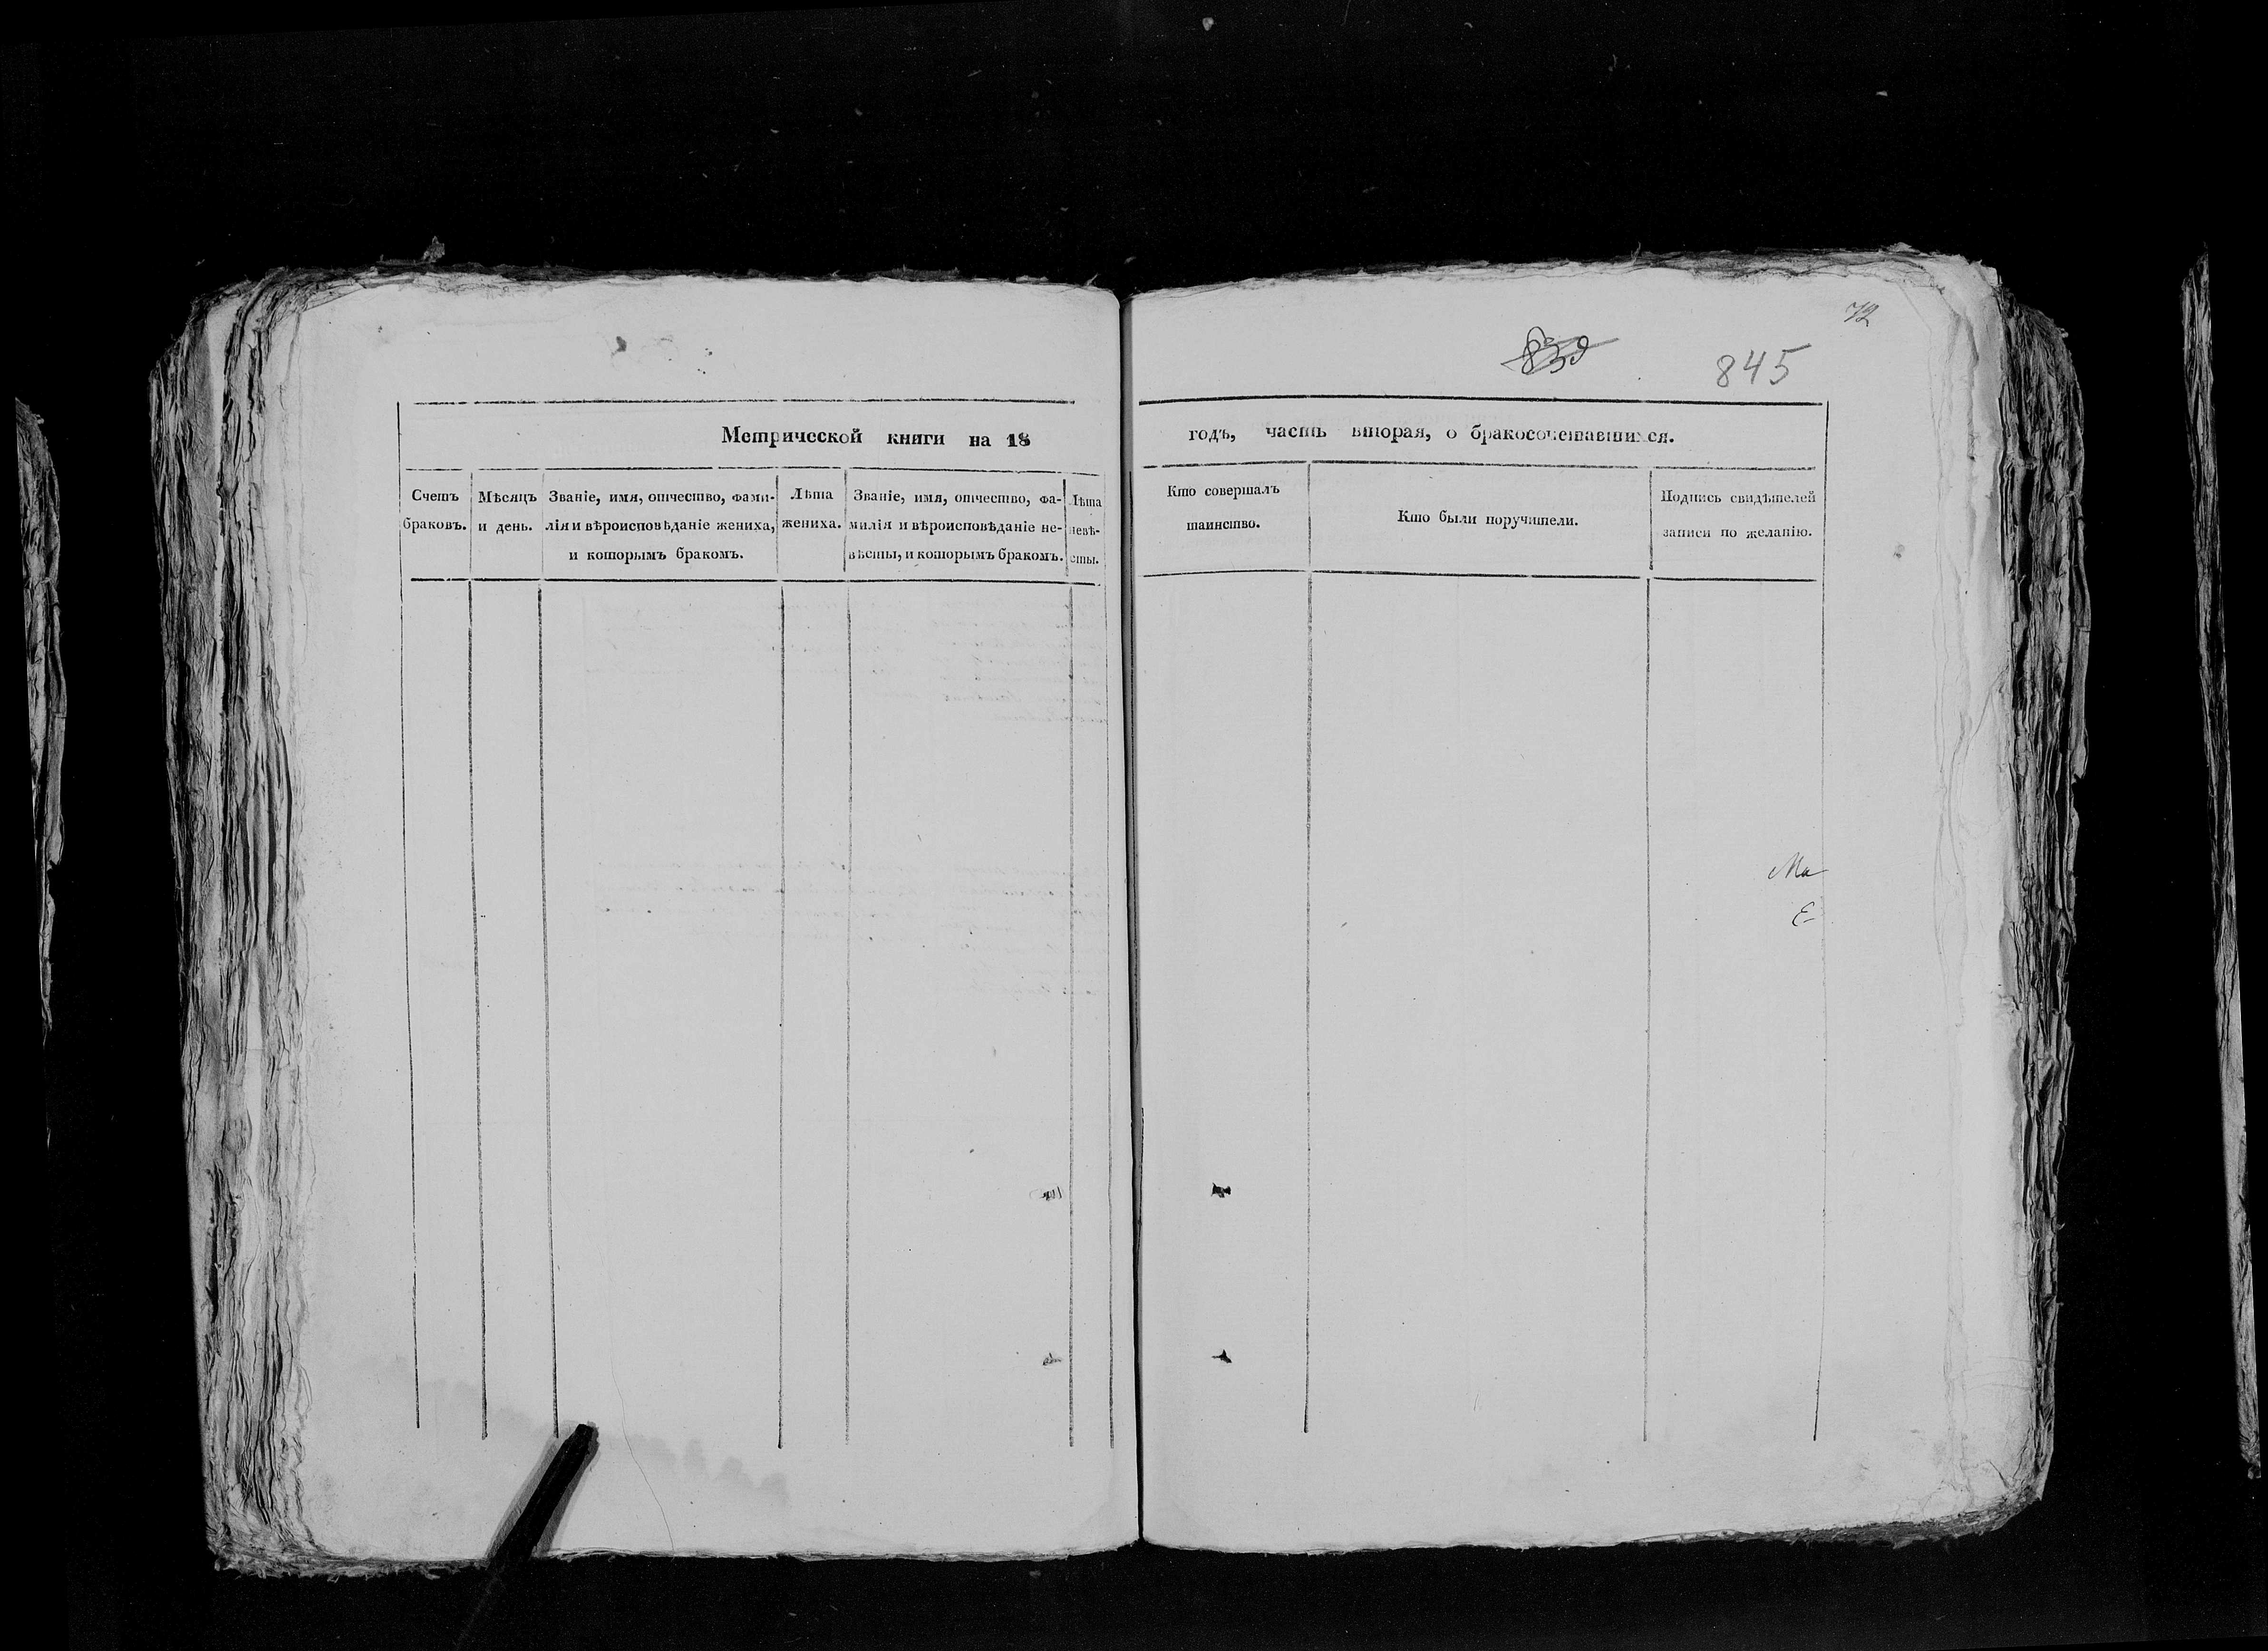 72
839
845
Метрической книги на 18
годъ, часть вторая, о бракосочетавшихся.
Счетъ браковъ.
Мѣсяцъ и день.
Званіе, имя, отчество, фами-
лія и вѣроисповѣданіе жениха,
и которымъ бракомъ.
Лѣта
жениха.
Званіе, имя, отчество, фа-
милія и вѣроисповѣданіе не-
вѣсты, и которымъ бракомъ.
Лѣта
невѣ-
сты.
Кто совершалъ
таинство.
Кто были поручители.
Подпись свидѣтелей
записи по желанію.
Ма
Е